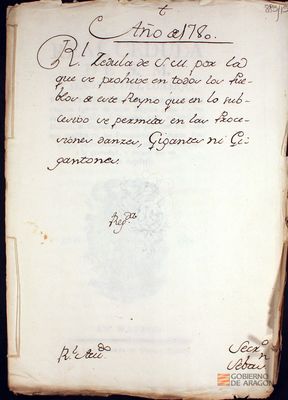 Año de 1780.
Rl. Zedula de S.M. por la
que se prohive en todos los Pue-
blos de este Reyno que en lo sub-
cesivo se permita en las Proce-
siones danzas, Gigantes ni Gi-
gantones.
Rl. Acdo.
Secro.
Sebas
GOBIERNO
DE ARAGON